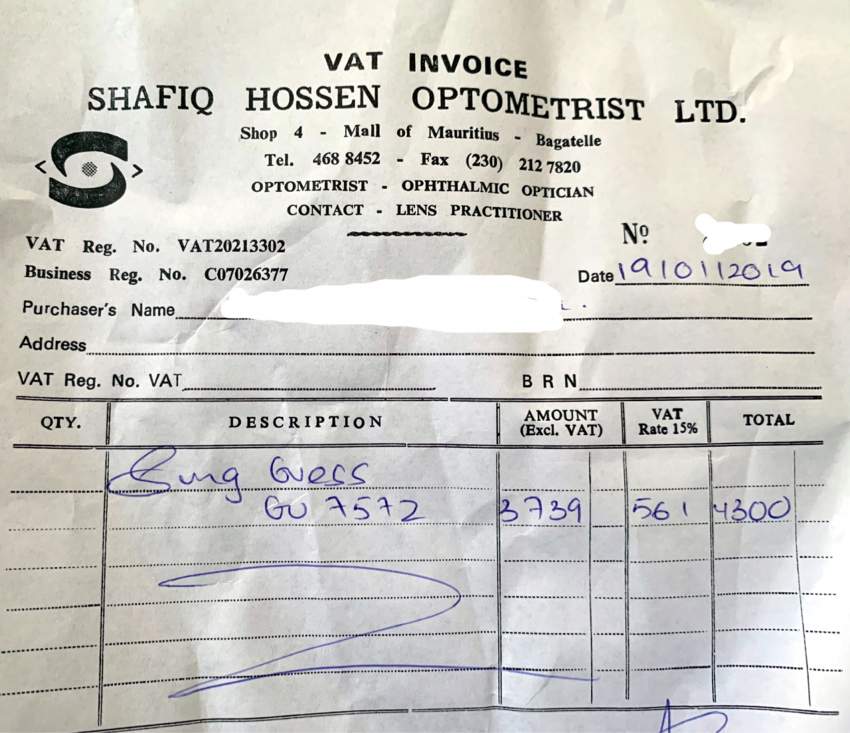 VAT INVOICE
SHAFIQ HOSSEN OPTOMETRIST LTD.
Shop 4 - Mall of Mauritius - Bagatelle
Tel. 468 8452 - Fax (230) 212 7820
OPTOMETRIST - OPHTHALMIC OPTICIAN
CONTACT - LENS PRACTITIONER
VAT Reg. No. VAT20213302
Nº
Business Reg. No. C07026377
Date 19/01/2019
Purchaser's Name
Address
VAT Reg. No. VAT
B R N
QTY. DESCRIPTION AMOUNT (Excl. VAT) VAT Rate 15% TOTAL
Guess
GU 7572 3739 561 4300